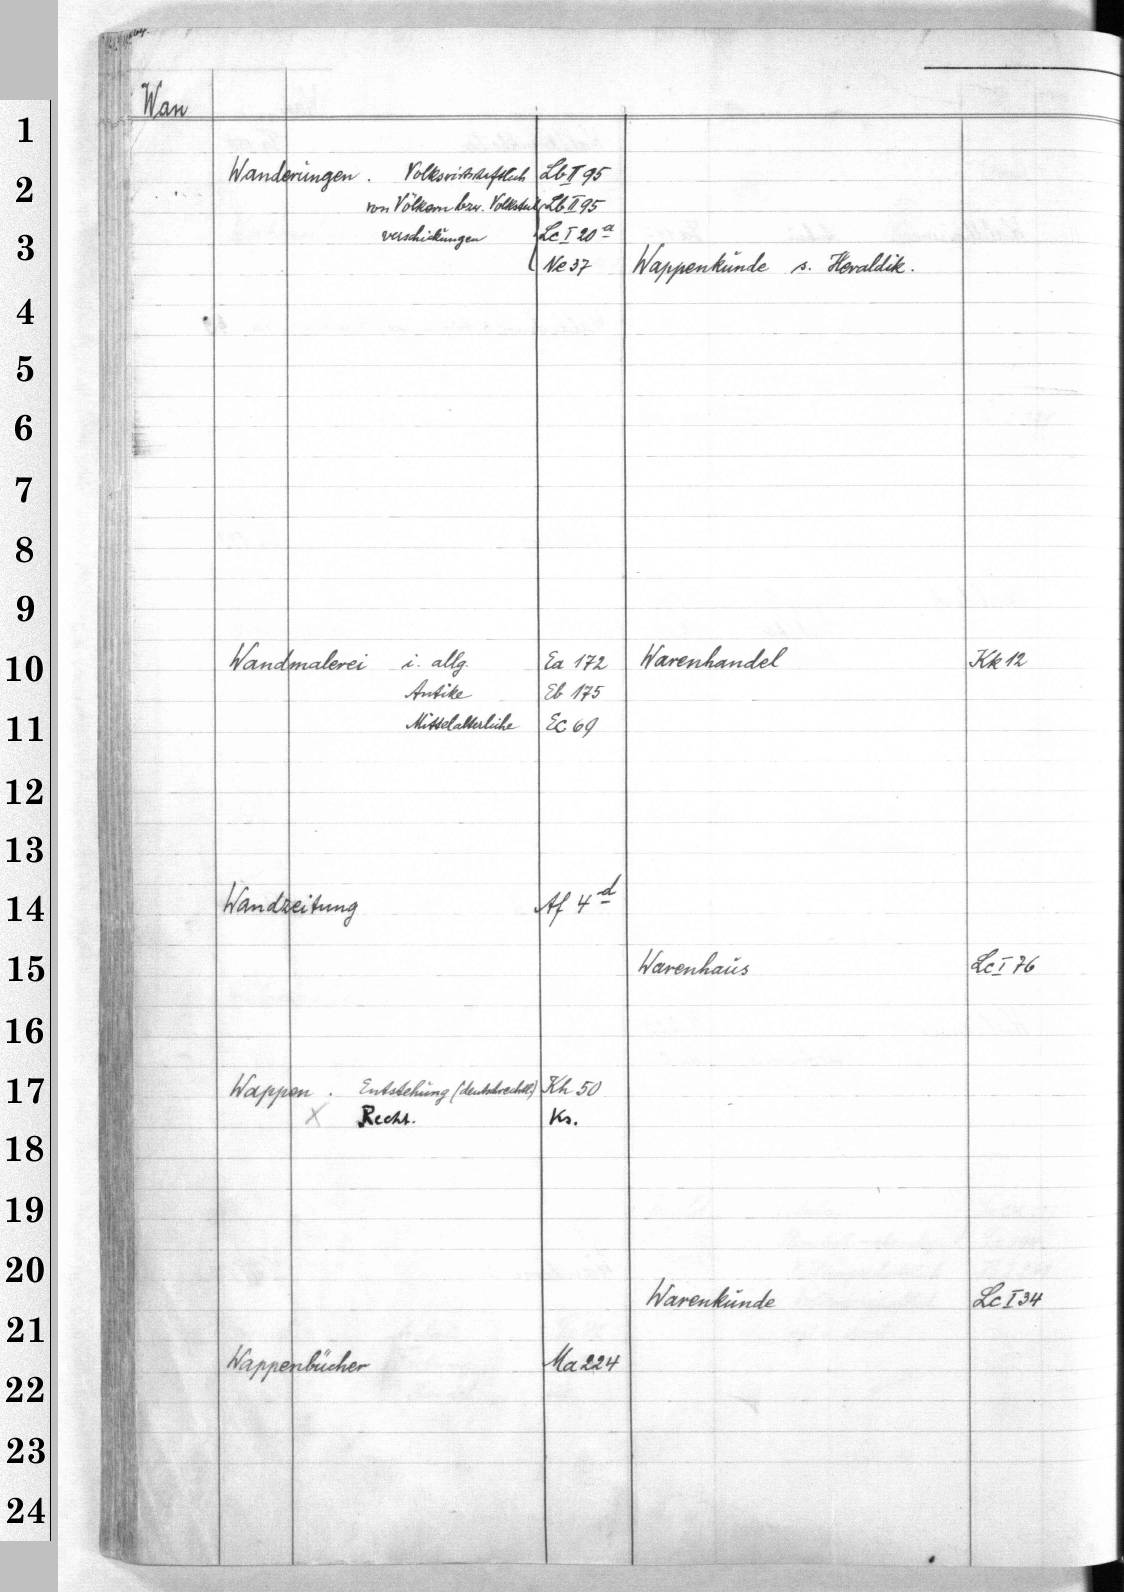 Wan
1
2
3
4
5
6
7
8
9
10
11
12
13
14
15
16
17
18
19
20
21
22
23
24
Wanderungen. Volkswirtschaftlich Lb II 95
von Völkern bzw. Lb II 95
verschickungen Lc I 20 a
Ne 37
Wandmalerei i. allg. Ea 172
Antike Eb 175
Mittelalterliche Ec 69
Wandzeitung Af 4 d
Wappen. Entstehung (deutschrechtl.) Kh 50
X Recht. Ks.
Wappenbücher Ma 224
Wappenkunde s. Heraldik.
Warenhandel Kk 12
Warenhaus Lc I 76
Warenkunde Lc I 34